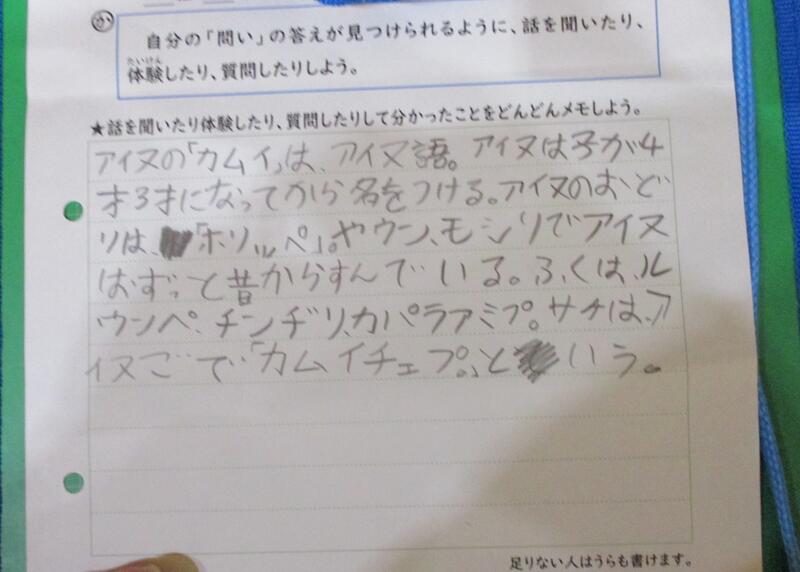 か
自分の「問い」の答えが見つけられるように、話を聞いたり、
体験したり、質問したりしよう。
たいけん
★話を聞いたり体験したり、質問したりして分かったことをどんどんメモしよう。
アイヌの「カムイ」は、アイヌ語。アイヌは子が4
才3才になってから名をつける。アイヌのおど
りは、「ホリッペ」。ヤウン、モシリでアイヌ
はずっと昔からすんでいる。ふくは、ル
ウンペ、チンヂリ、カパラアミプ。サケは、ア
イヌごで「カムイチェプ」という。
足りない人はうらも書けます。